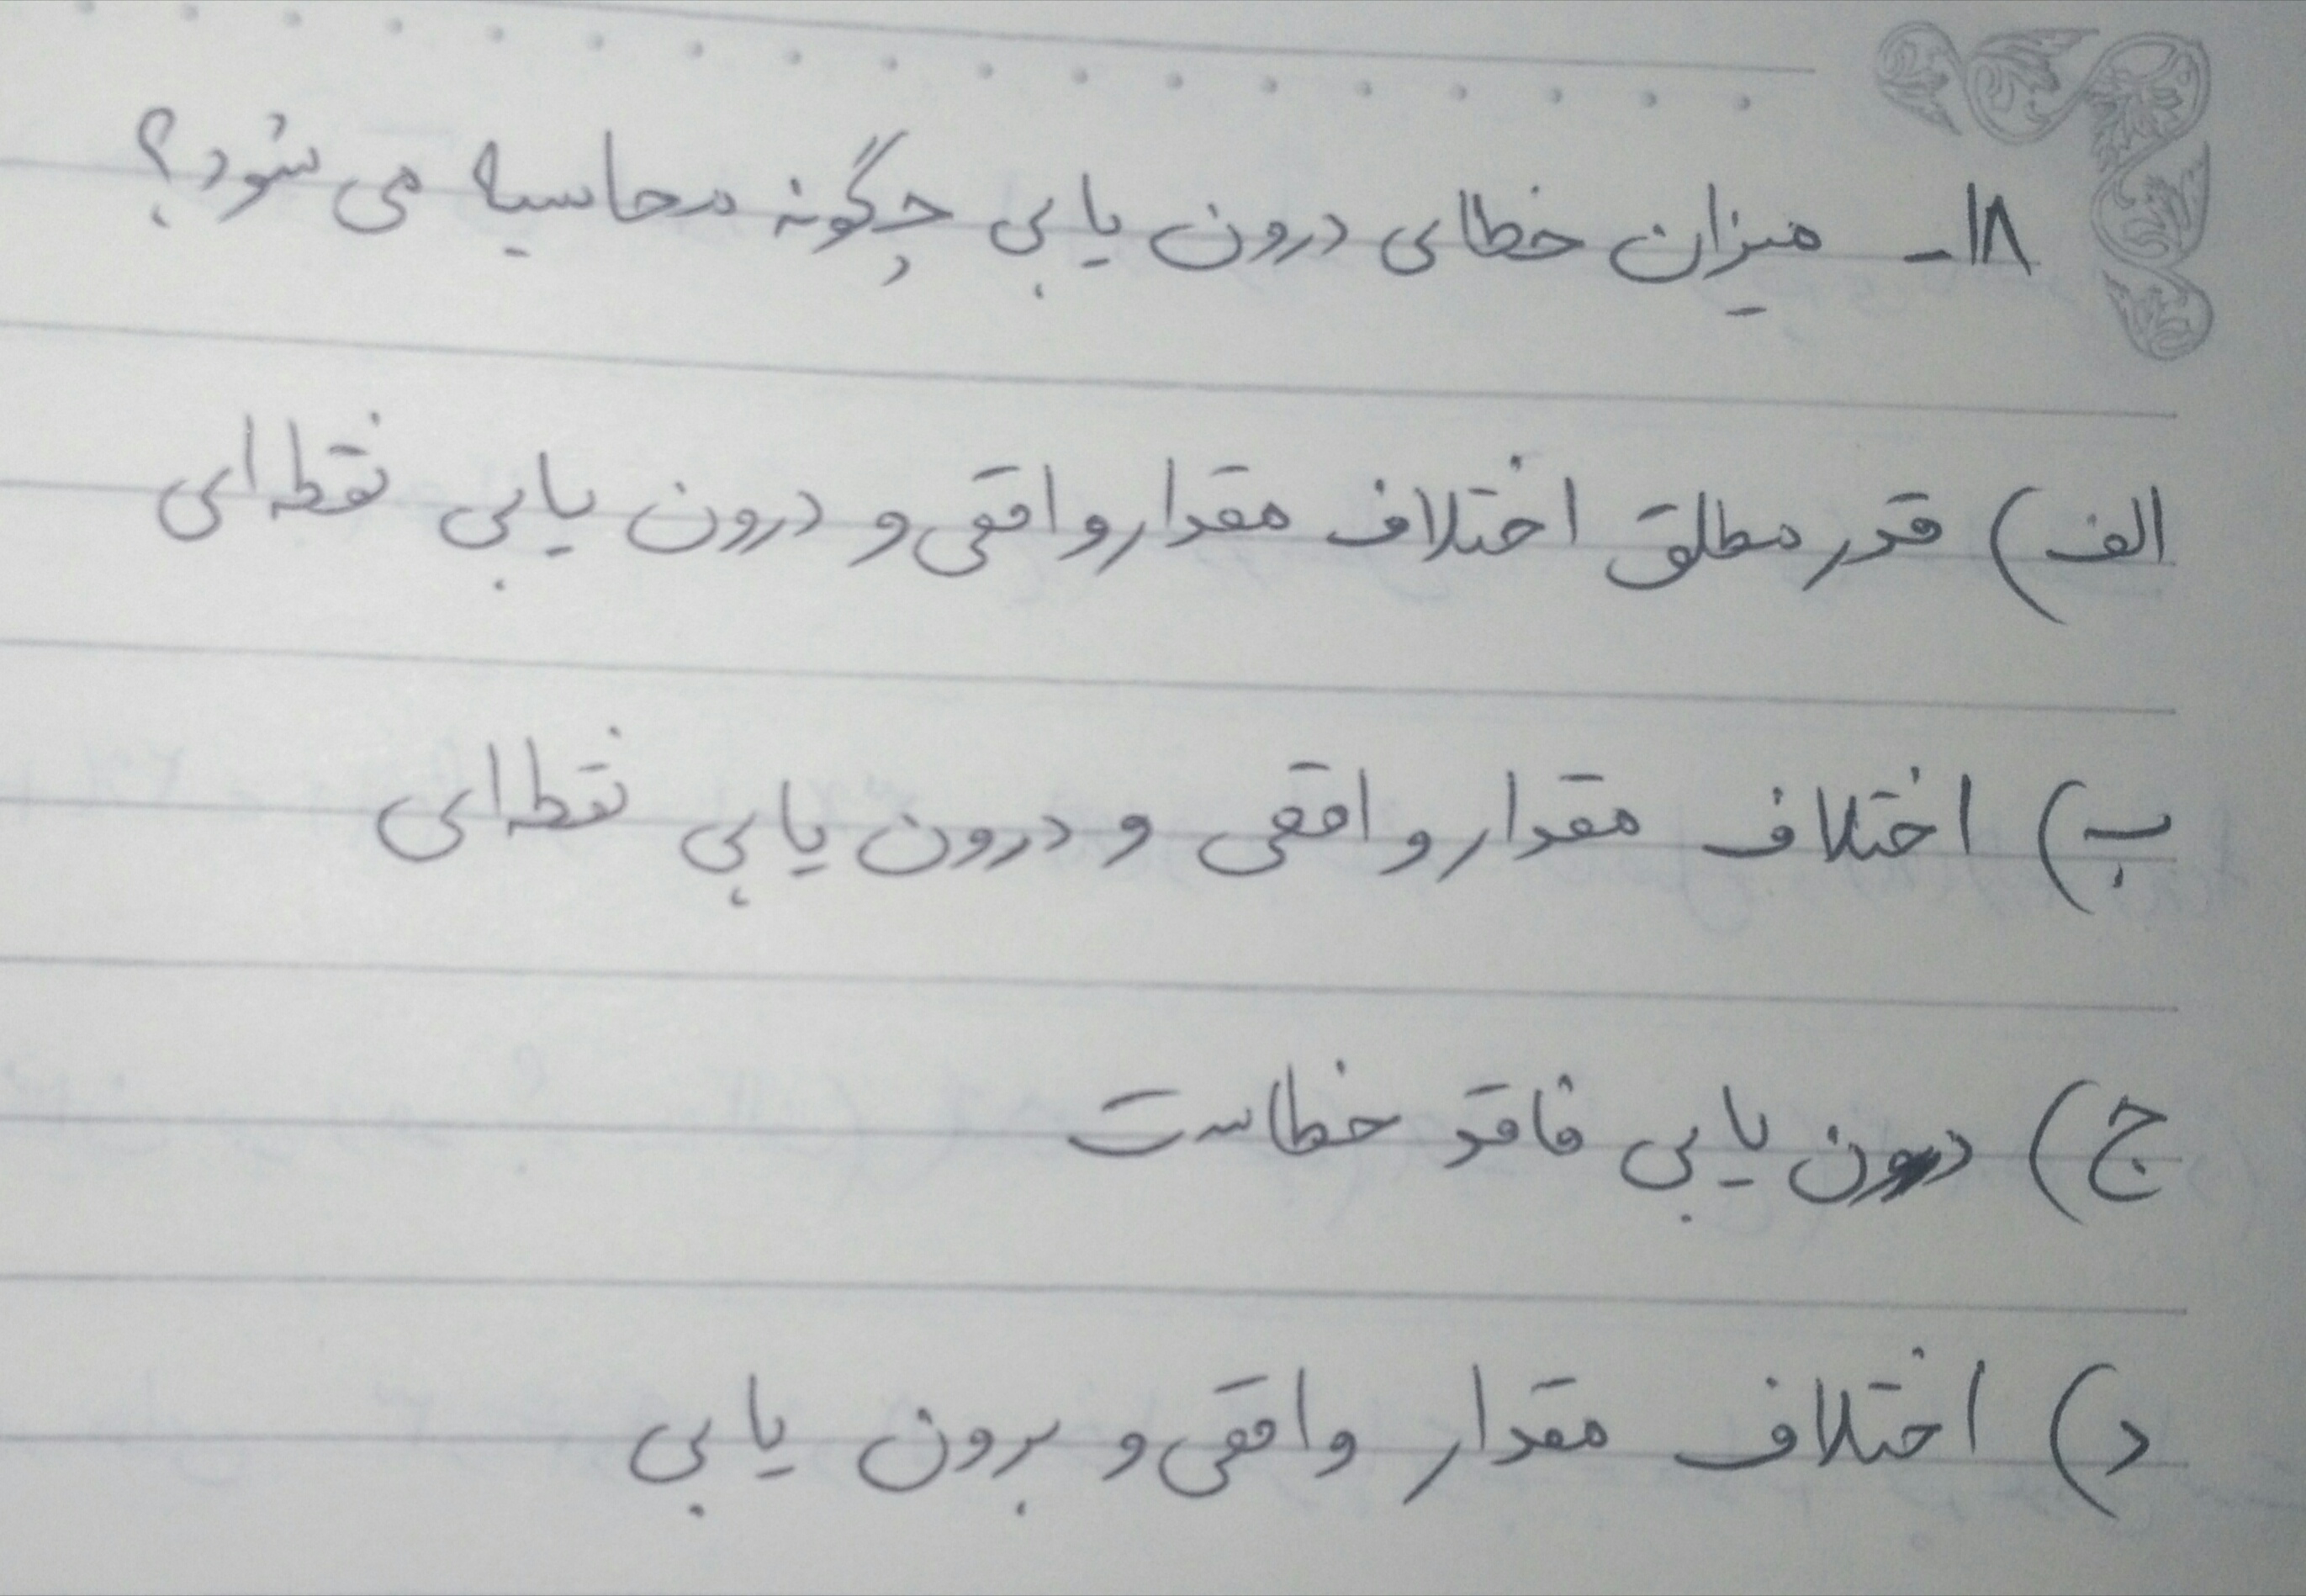 ۱۸- میزان خطای درون یابی چگونه محاسبه می شود؟
الف) قدر مطلق اختلاف مقدار واقعی و درون یابی نقطه ای
ب) اختلاف مقدار واقعی و درون یابی نقطه ای
ج) درون یابی فاقد خطاست
د) اختلاف مقدار واقعی و برون یابی